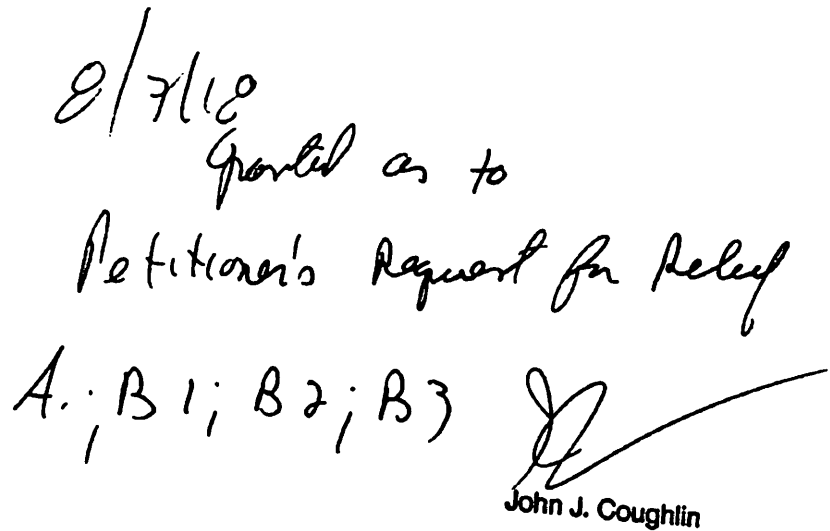 8/7/18
Granted as to
Petitioner's Request for Relief
A.; B1; B2; B3
John J. Coughlin